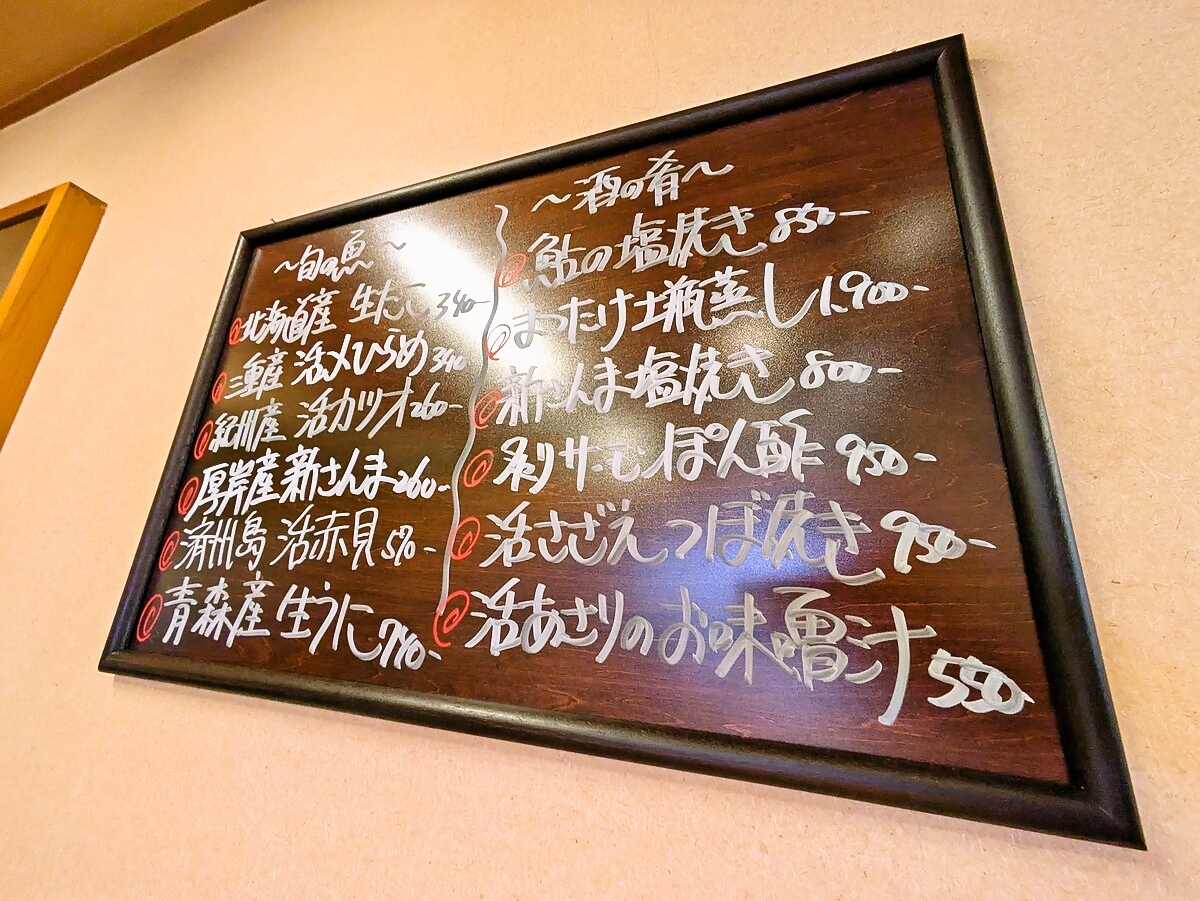 ～旬の魚～
北海道産 生たこ 340-
三重産 活〆ひらめ 340-
紀州産 活カツオ 260-
厚岸産 新さんま 260-
済州島 活赤貝 570-
青森産 生うに 780-
～酒の肴～
鮎の塩焼き 850-
まつたけ土瓶蒸し 1,900-
新さんま塩焼き 800-
炙りサーモンぽん酢 950-
活さざえつぼ焼き 950-
活あさりのお味噌汁 550-